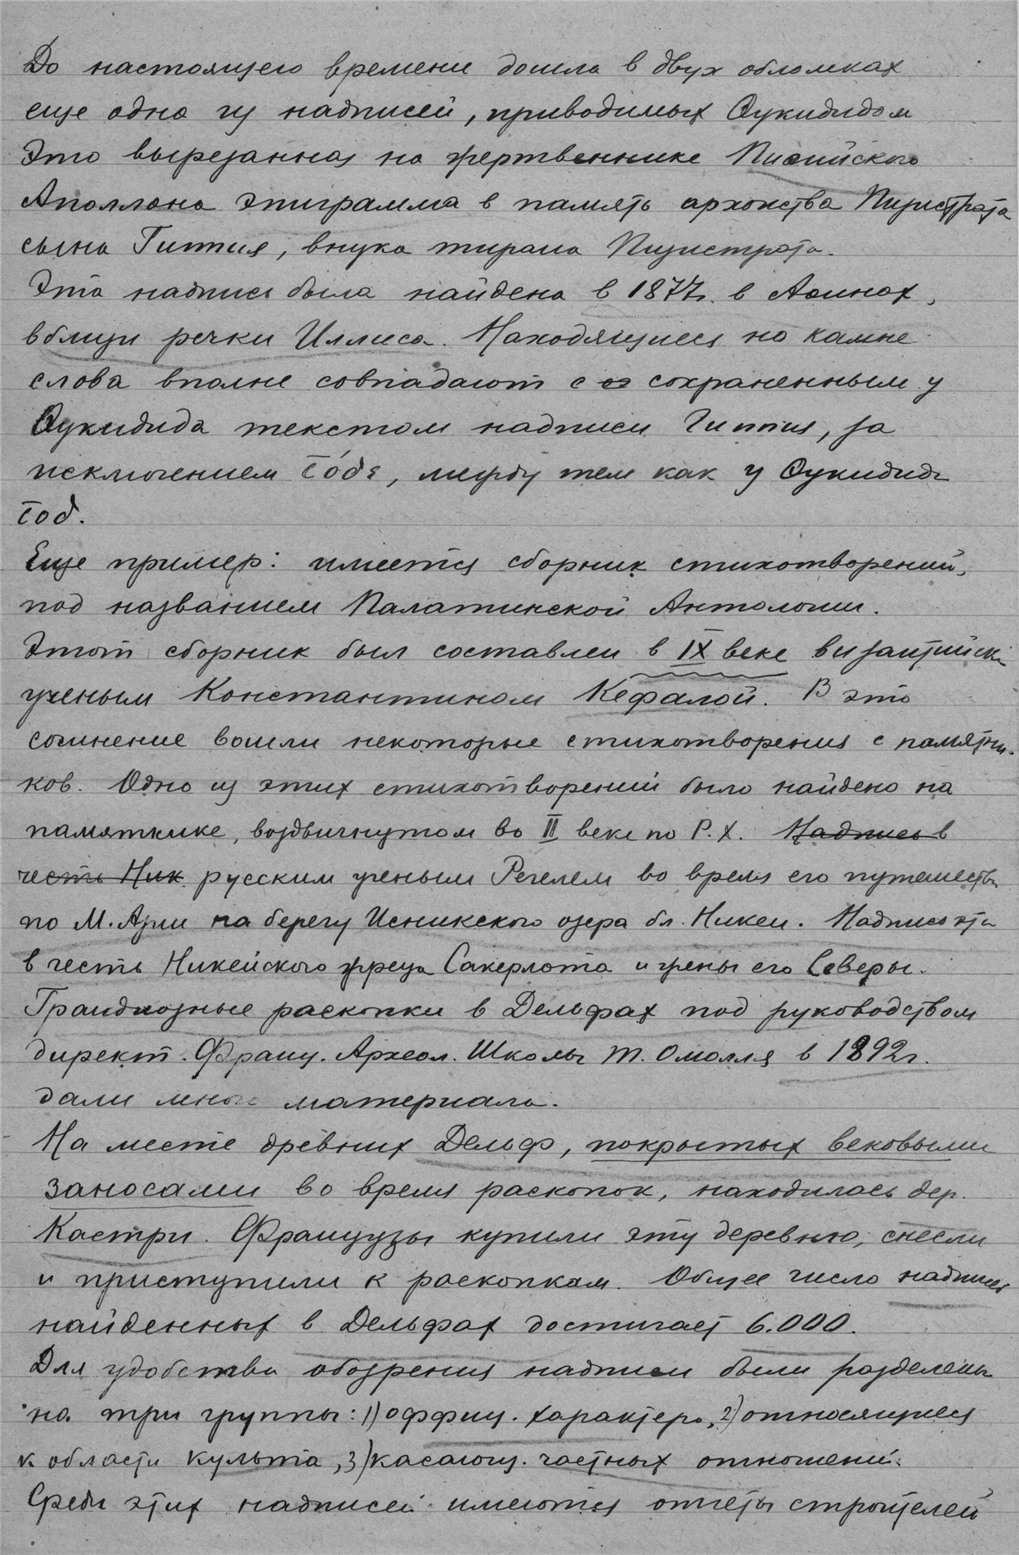 До настоящего времени дошла в двух обломках
еще одна из надписей, приводимых Фукидидом
Это вырезанная на жертвеннике Пифийского
Аполлона эпиграмма в память архонства Пизистрата
сына Гиппия, внука тирана Пизистрата.
Эта надпись была найдена в 1877г. в Афинах,
вблизи речки Иллиса. Находящиеся на камне
слова вполне совпадают с со сохраненным у
Фукидида текстом надписи Гиппия, за
исключением τόδε, между тем как у Фукидида
τοδ.
Еще пример: имеется сборник стихотворений,
под названием Палатинской Антологии.
Этот сборник был составлен в IX веке византийски
ученым Константином Кефалой. В это
сочинение вошли некоторые стихотворения с памятни-
ков. Одно из этих стихотворений было найдено на
памятнике, воздвигнутом во II веке по Р.Х. Надпись в
честь Ник русским ученым Регелем во время его путешеств
по М. Азии на берегу Исникского озера бл. Никеи. Надпись эта
в честь Никейского жреца Сакерлота и жены его Северы.
Грандиозные раскопки в Дельфах под руководством
директ. Франц. Археол. Школы Т. Омолля в 1892г.
дали много материала.
На месте древних Дельф, покрытых вековыми
заносами во время раскопок, находилась дер.
Кастри. Французы купили эту деревню, снесли
и приступили к раскопкам. Общее число надписей
найденных в Дельфах достигает 6.000.
Для удобства обозрения надписи были разделены
на три группы: 1) оффиц. характера, 2) относящиеся
к области культа, 3) касающ. частных отношений.
Среди этих надписей имеются отчеты строителей